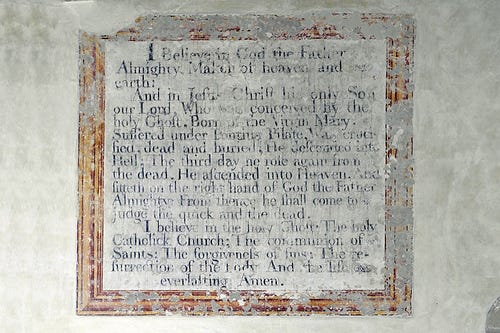 I Believe in God the Father
Almighty, Maker of heaven and
earth:
And in Jeſus Chriſt his only Son
our Lord, Who was conceived by the
holy Ghoſt, Born of the Virgin Mary,
Suffered under Pontius Pilate, Was cruci-
fied, dead and buried; He deſcended into
Hell; The third day he roſe again from
the dead, He aſcended into Heaven, And
ſitteth on the right hand of God the Father
Almighty; From thence he ſhall come to
judge the quick and the dead.
I believe in the holy Ghoſt; The holy
Catholick Church; The communion of
Saints; The forgiveneſs of ſins; The re-
ſurrection of the body, And the life
everlaſting Amen.